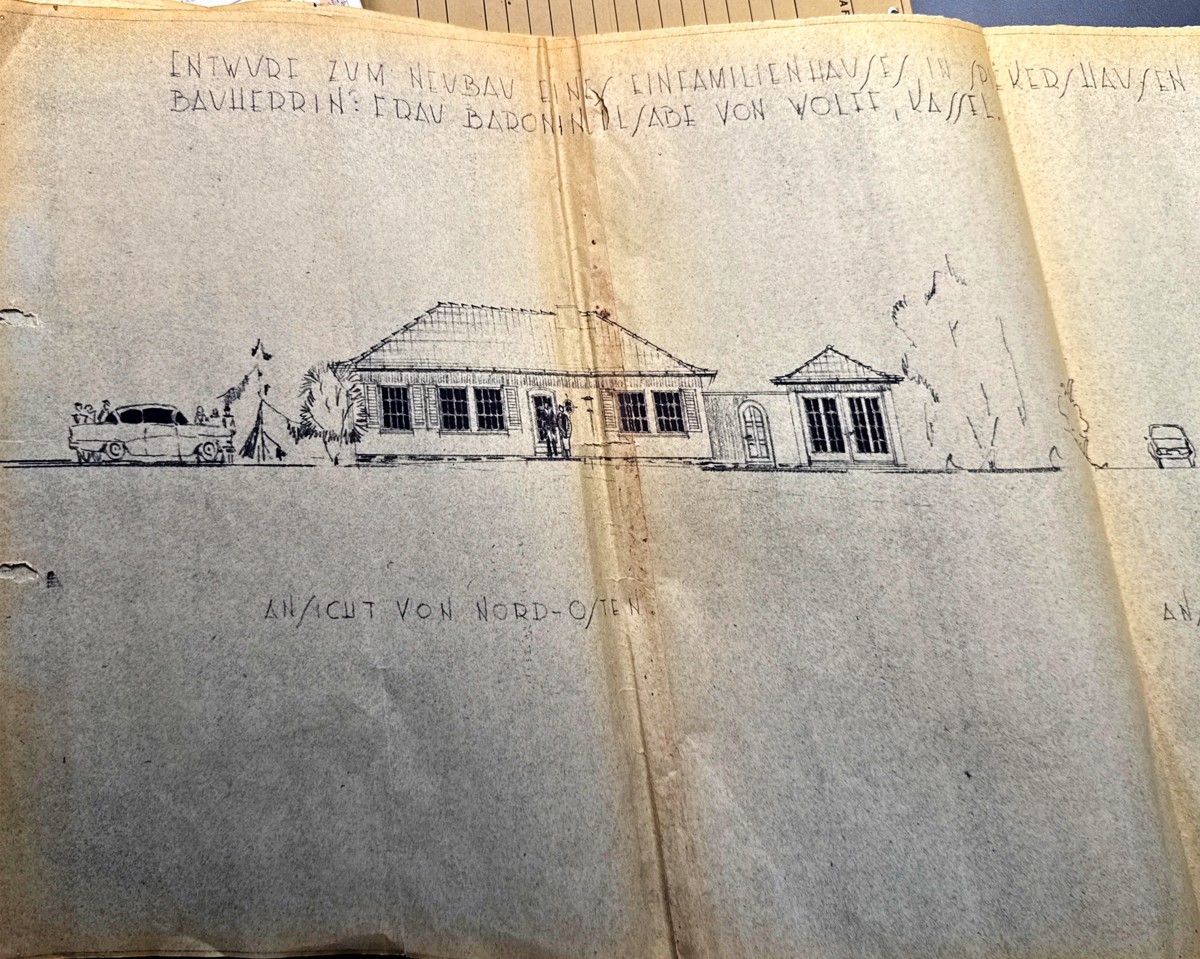 ENTWURF ZUM NEUBAU EINES EINFAMILIENHAUSES IN SPIEKERSHAUSEN
BAUHERRIN: FRAU BARONIN ILSABE VON WOLFF, KASSEL.
ANSICHT VON NORD-OSTEN.